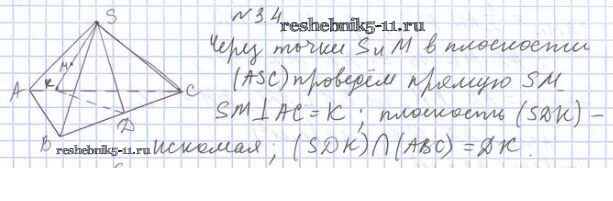 №34
reshebnik5-11.ru
Через точки S и M в плоскости
(ASC) проведём прямую SM
SM⊥AC=K; плоскость (SDK) -
искомая; (SDK)∩(ABC)=DK.
reshebnik5-11.ru
S
M
A
K
C
D
B